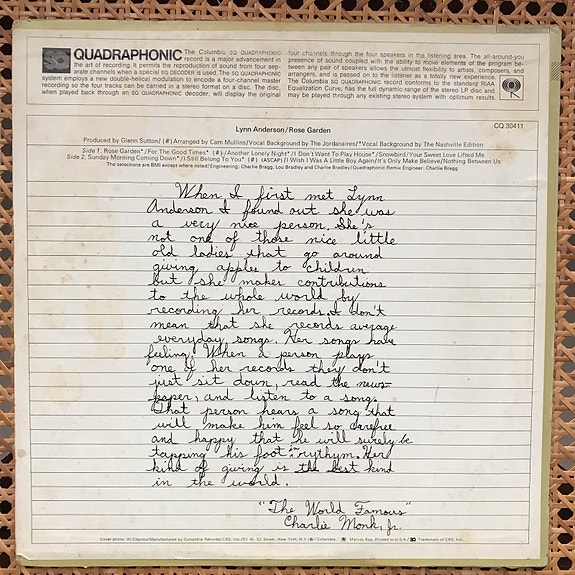 SQ
QUADRAPHONIC
The Columbia SQ QUADRAPHONIC record is a major advancement in
the art of recording. It permits the reproduction of sound from four separate channels when a special SQ DECODER is used. The SQ QUADRAPHONIC
system employs a new double-helical modulation to encode a four-channel master
recording so the four tracks can be carried in a stereo format on a disc. The disc,
when played back through an SQ QUADRAPHONIC decoder, will display the original
four channels through the four speakers in the listening area. The all-around-you
presence of sound coupled with the ability to move elements of the program between any pair of speakers allows the utmost flexibility to artists, composers, and
arrangers, and is passed on to the listener as a totally new experience. The
Columbia SQ QUADRAPHONIC record conforms to the standard RIAA
Equalization Curve, has the full dynamic range of the stereo LP disc and
may be played through any existing stereo system with optimum results.
Lynn Anderson/Rose Garden
CQ 30411
Produced by Glenn Sutton/(#)Arranged by Cam Mullins/Vocal Background by The Jordanaires/*Vocal Background by The Nashville Edition
Side 1. Rose Garden*/For The Good Times* (#)/Another Lonely Night*/I Don't Want To Play House*/Snowbird/Your Sweet Love Lifted Me
Side 2. Sunday Morning Coming Down*/I Still Belong To You* (#) (ASCAP)/I Wish I Was A Little Boy Again/It's Only Make Believe/Nothing Between Us
The selections are BMI except where noted/Engineering: Charlie Bragg, Lou Bradley and Charlie Bradley/Quadraphonic Remix Engineer: Charlie Bragg.
When I first met Lynn
Anderson I found out she was
a very nice person. She's
not one of those nice little
old ladies that go around
giving apples to children
but she makes contributions
to the whole world by
recording her records. I don't
mean that she records average
everyday songs. Her songs have
feeling. When a person plays
one of her records they don't
just sit down, read the news-
paper, and listen to a song.
That person hears a song that
will make him feel so carefree
and happy that he will surely be
tapping his foot in rythym. Her
kind of giving is the best kind
in the world.
"The World Famous"
Charlie Monk, Jr.
Cover photo: Al Clayton/Manufactured by Columbia Records/CBS, Inc./51 W. 52 Street, New York, N.Y./® Columbia, Marcas Reg. Printed in U.S.A./ Trademark of CBS, Inc.